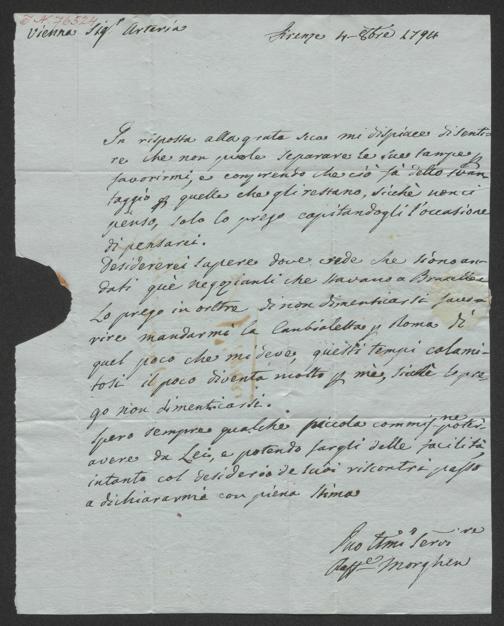 I.N. 76524
Vienna Sig.r Artaria Firenze 4 8bre 1794
In risposta alla grata sua mi dispiace di senti-
re che non vuole separare le sue stampe p
favorirmi, e comprendo che ciò fà dello svan-
taggio p quelle che gli restano, sichè non ci
penso, solo lo prego capitandogli l'occasione
di pensarci.
Desidererei sapere dove crede che siono an-
dati què negozianti che stavano a Bruxelles
Lo prego inoltre di non dimenticarsi favo-
rire mandarmi la Cambialetta p Roma di
quel poco che mi deve, questi tempi calami-
tosi il poco diventa molto p mè, sichè lo pre-
go non dimenticarsi.
Spero sempre qualche piccola commis.ne poter
avere da Lei, e potendo fargli delle facilità
intanto col desiderio de suoi riscontri passo
a dichiararmi con piena stima
Suo Amo Servire
Raff.e Morghen